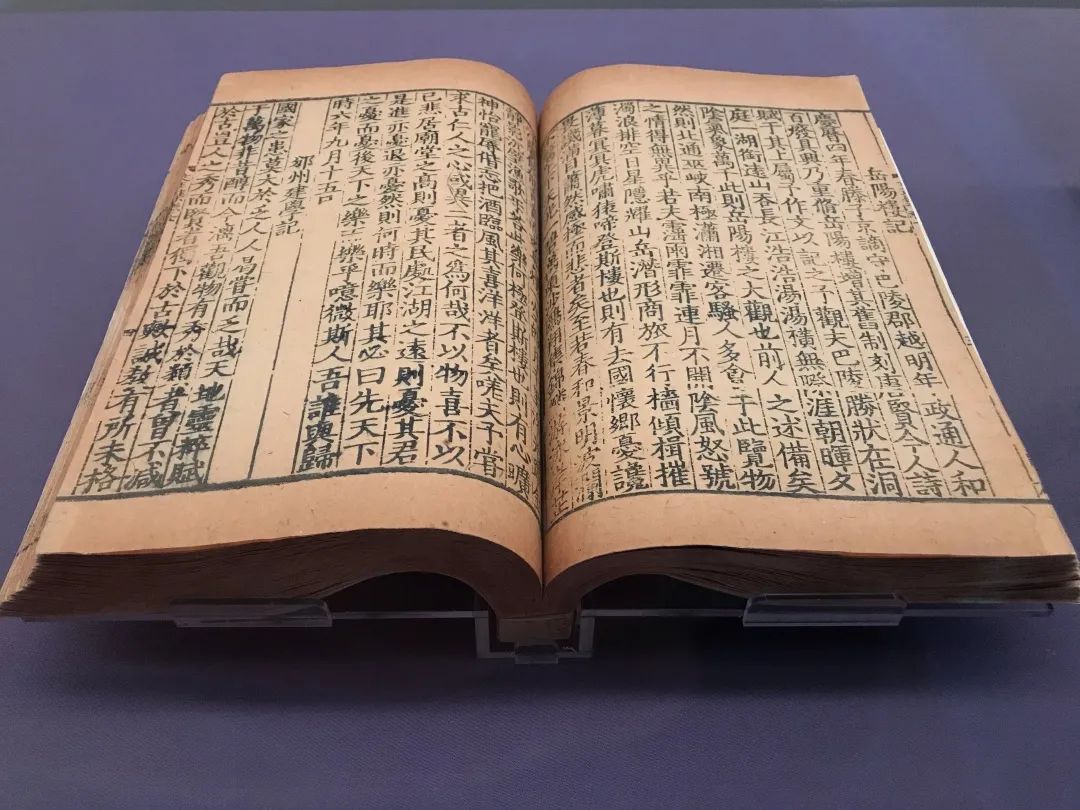 岳陽樓記
慶曆四年春滕子京謫守巴陵郡越明年政通人和
百廢具興乃重脩岳陽樓增其舊制刻唐賢今人詩
賦于其上屬予作文以記之予觀夫巴陵勝狀在洞
庭一湖銜遠山吞長江浩浩湯湯橫無際涯朝暉夕
陰氣象萬千此則岳陽樓之大觀也前人之述備矣
然則北通巫峽南極瀟湘遷客騷人多會于此覽物
之情得無異乎若夫霪雨霏霏連月不開陰風怒號
濁浪排空日星隱耀山岳潛形商旅不行檣傾楫摧
薄暮冥冥虎嘯猿啼登斯樓也則有去國懷鄉憂讒
蕭然感極而悲者矣至若春和景明波瀾
漁歌互答此樂何極登斯樓也則有心曠
神怡寵辱偕忘把酒臨風其喜洋洋者矣嗟夫予嘗
求古仁人之心或異二者之爲何哉不以物喜不以
己悲居廟堂之高則憂其民處江湖之遠則憂其君
是進亦憂退亦憂然則何時而樂耶其必曰先天下
之憂而憂後天下之樂而樂乎噫微斯人吾誰與歸
時六年九月十五日
邠州建學記
國家之患莫大於乏人人曷嘗而乏哉天地靈粹賦
于萬物非昔醇而今漓吾觀物有秀於類者曾不減
於古豈人之秀而賢者獨下於古歟誠教有所未格